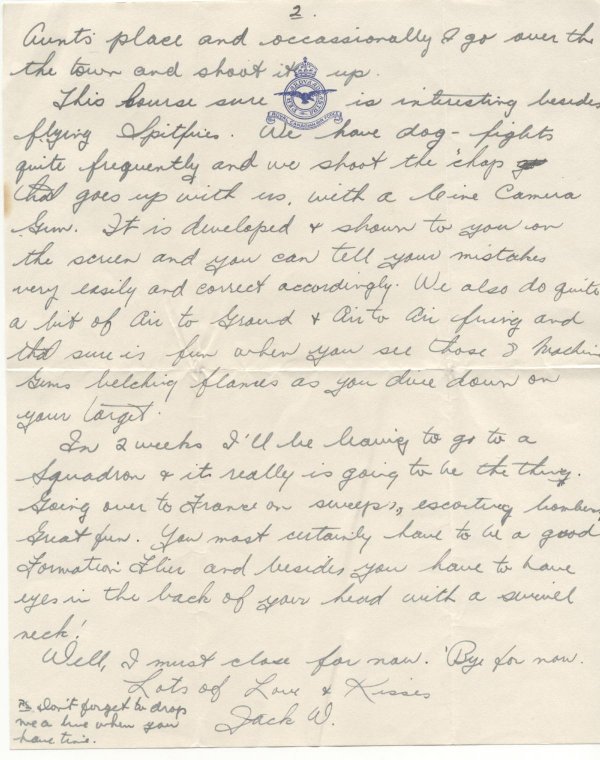 2.
Aunts place and occassionally I go over the
the town and shoot it up.
This Course sure is interesting besides
flying Spitfires. We have dog-fights
quite frequently and we shoot the 'chap
that goes up with us, with a Cine Camera
Gun. It is developed & shown to you on
the screen and you can tell your mistakes
very easily and correct accordingly. We also do quite
a bit of Air to Ground & Air to Air firing and
that sure is fun when you see those 8 Machine
Guns belching flames as you dive down on
your target.
In 2 weeks I'll be leaving to go to a
Squadron & it really is going to be the thing.
Going over to France on sweeps, escorting bombers
Great fun. You most certainly have to be a good
Formation Flier and besides you have to have
eyes in the back of your head with a swivel
neck!
Well, I must close for now. 'Bye for now.
Lots of Love & Kisses
Jack W.
PS Don't forget to drop
me a line when you
have time.
ROYAL CANADIAN AIR FORCE